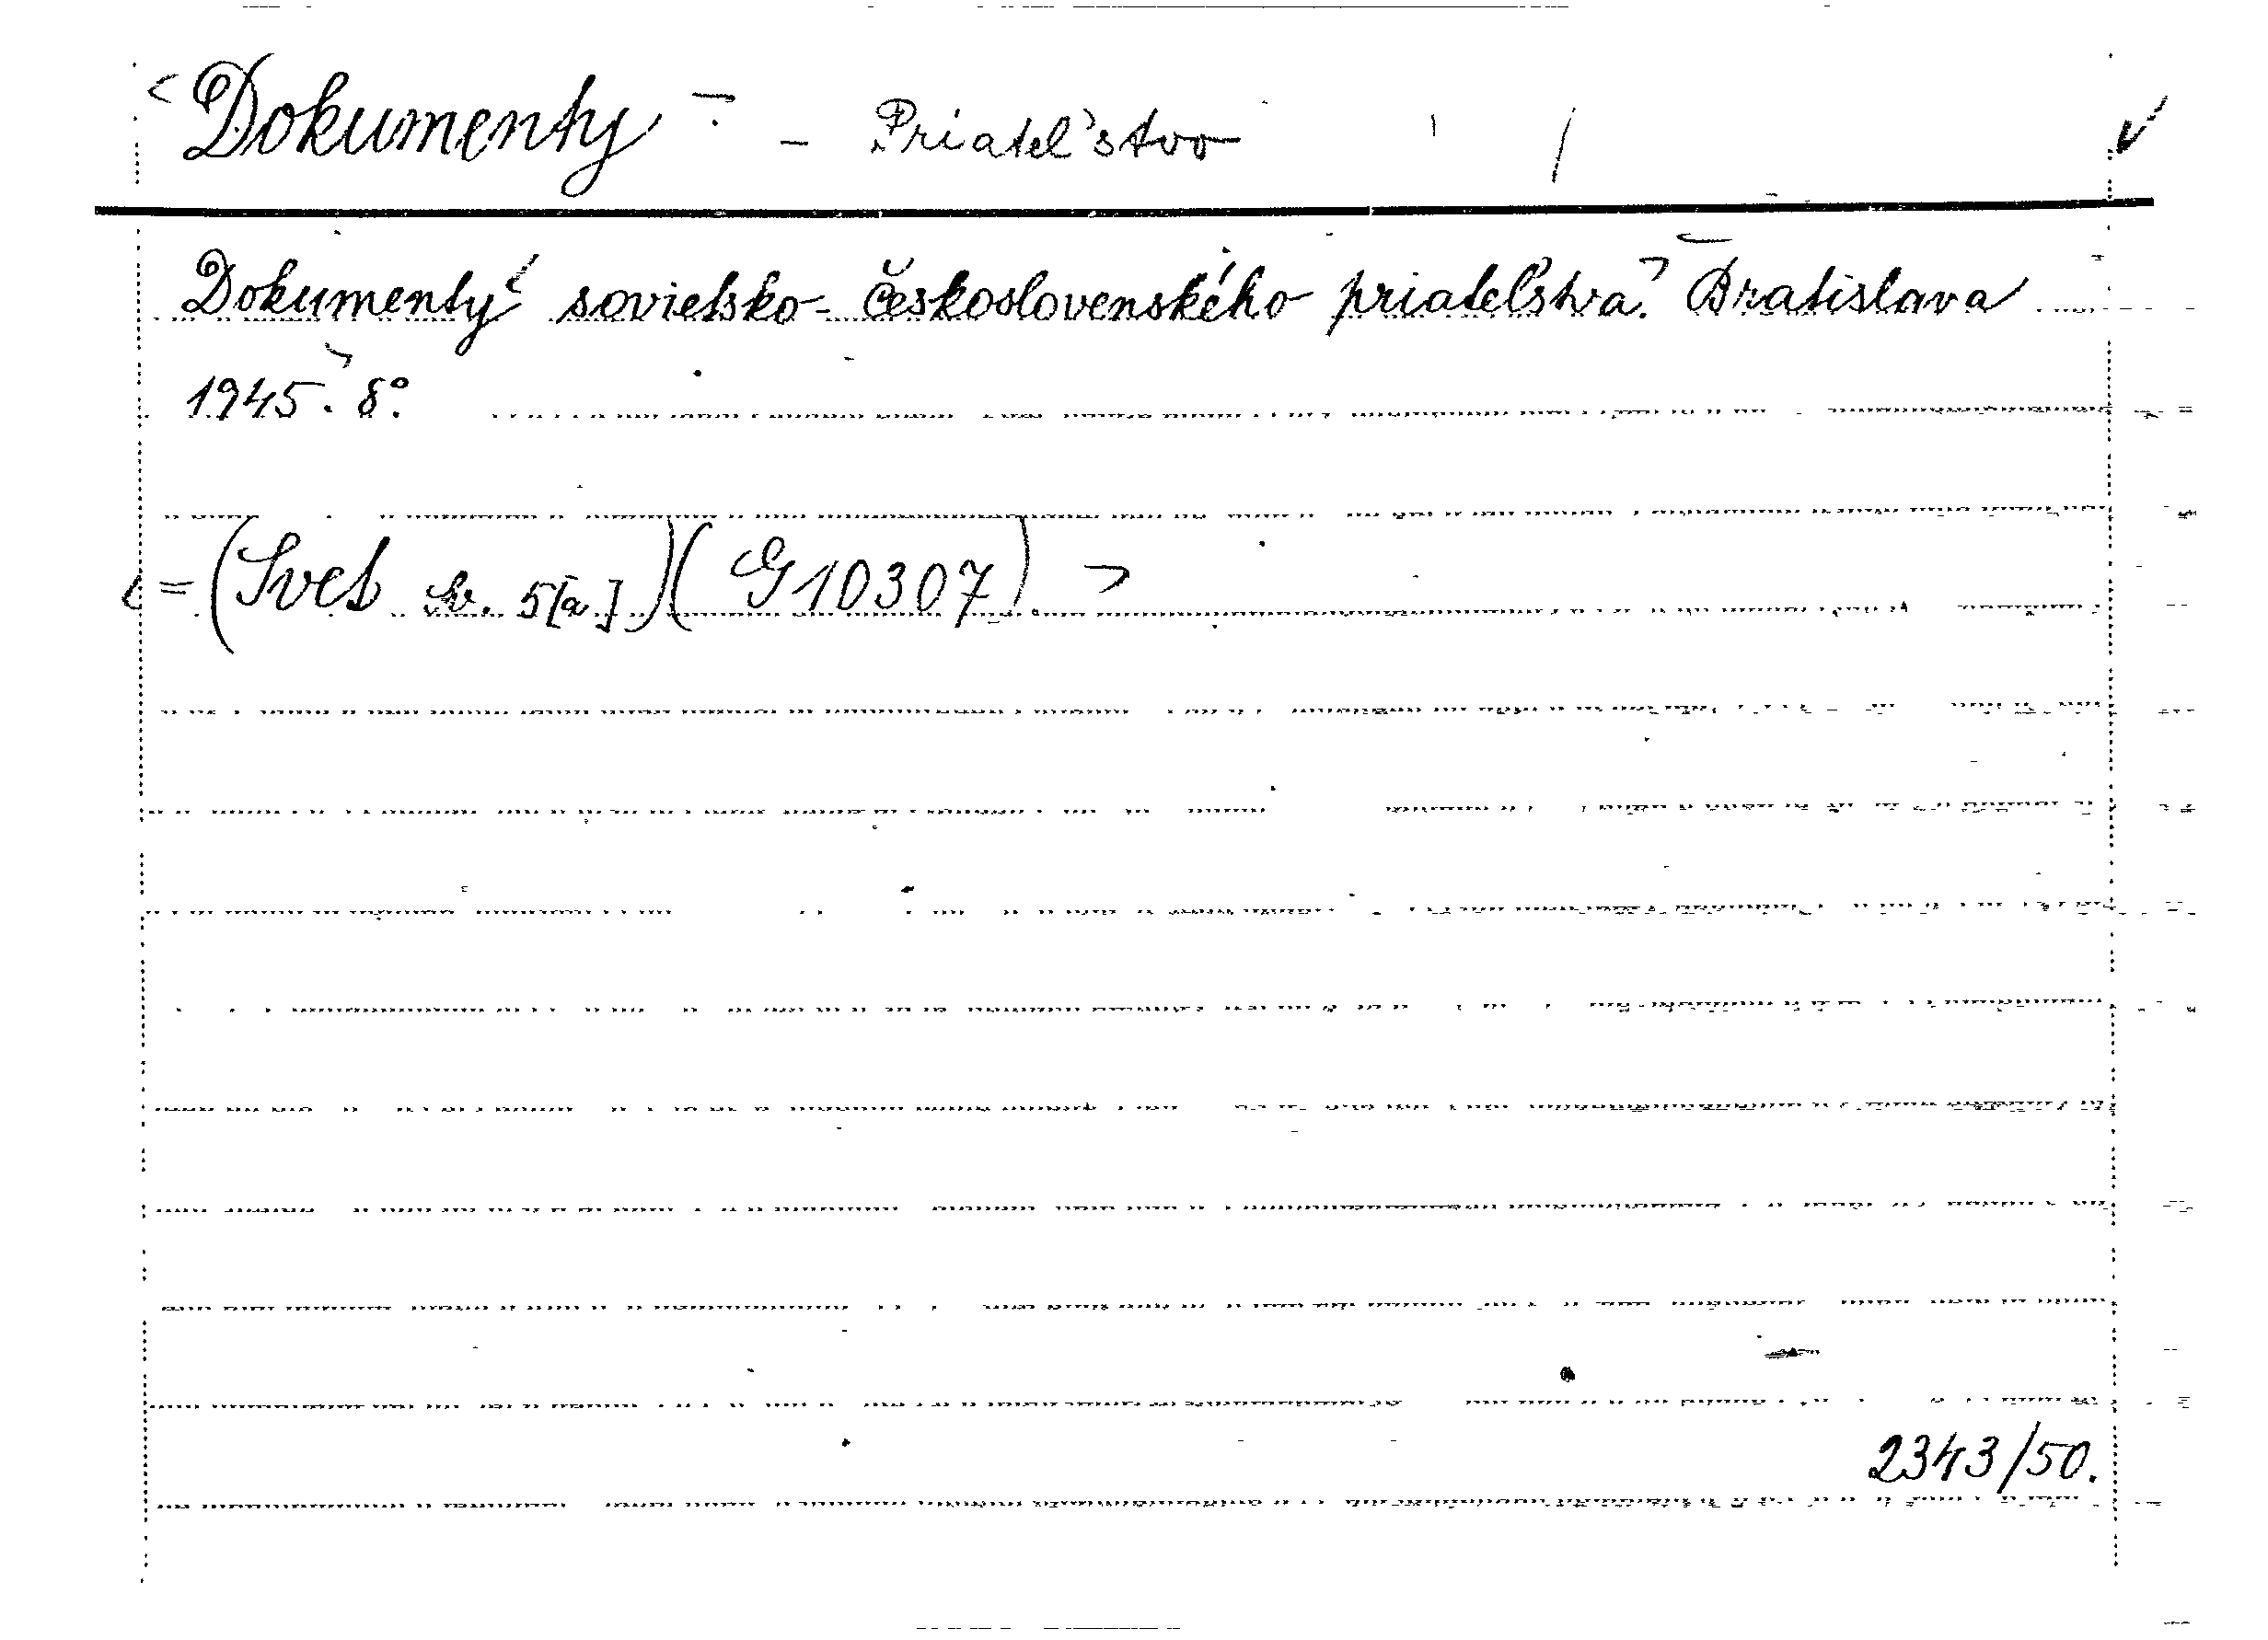 Dokumenty - Priateľstvo
Dokumenty sovietsko-československého priateľstva. Bratislava
1945. 8°.
=(Svet sv. 5[a])(G 10307)
2343/50.